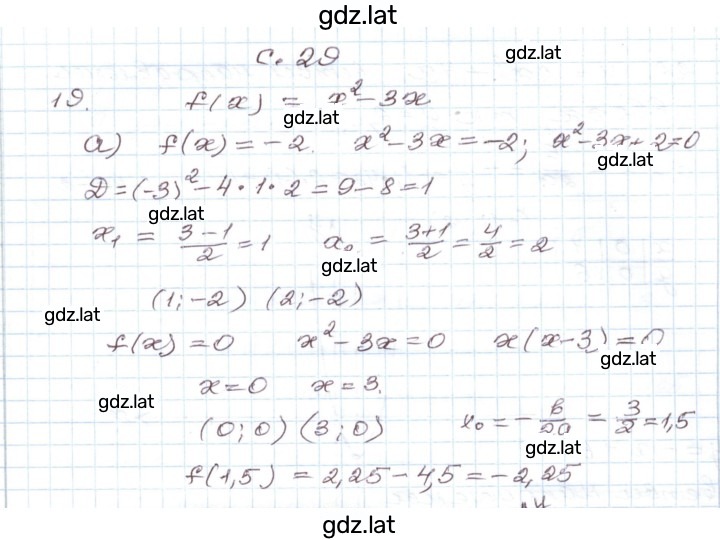 gdz.lat
с. 29
gdz.lat
19. f(x) = x² - 3x
gdz.lat
а) f(x) = -2. x² - 3x = -2; x² - 3x + 2 = 0
gdz.lat
D = (-3)² - 4 · 1 · 2 = 9 - 8 = 1
gdz.lat
x₁ = (3 - 1)/2 = 1 x₀ = (3+1)/2 = 4/2 = 2
gdz.lat
(1; -2) (2; -2)
gdz.lat
f(x) = 0 x² - 3x = 0 x(x - 3) = 0
gdz.lat
x = 0 x = 3.
gdz.lat
(0; 0) (3; 0) x₀ = - в/2a = 3/2 = 1,5
gdz.lat
f(1,5) = 2,25 - 4,5 = -2,25
gdz.lat